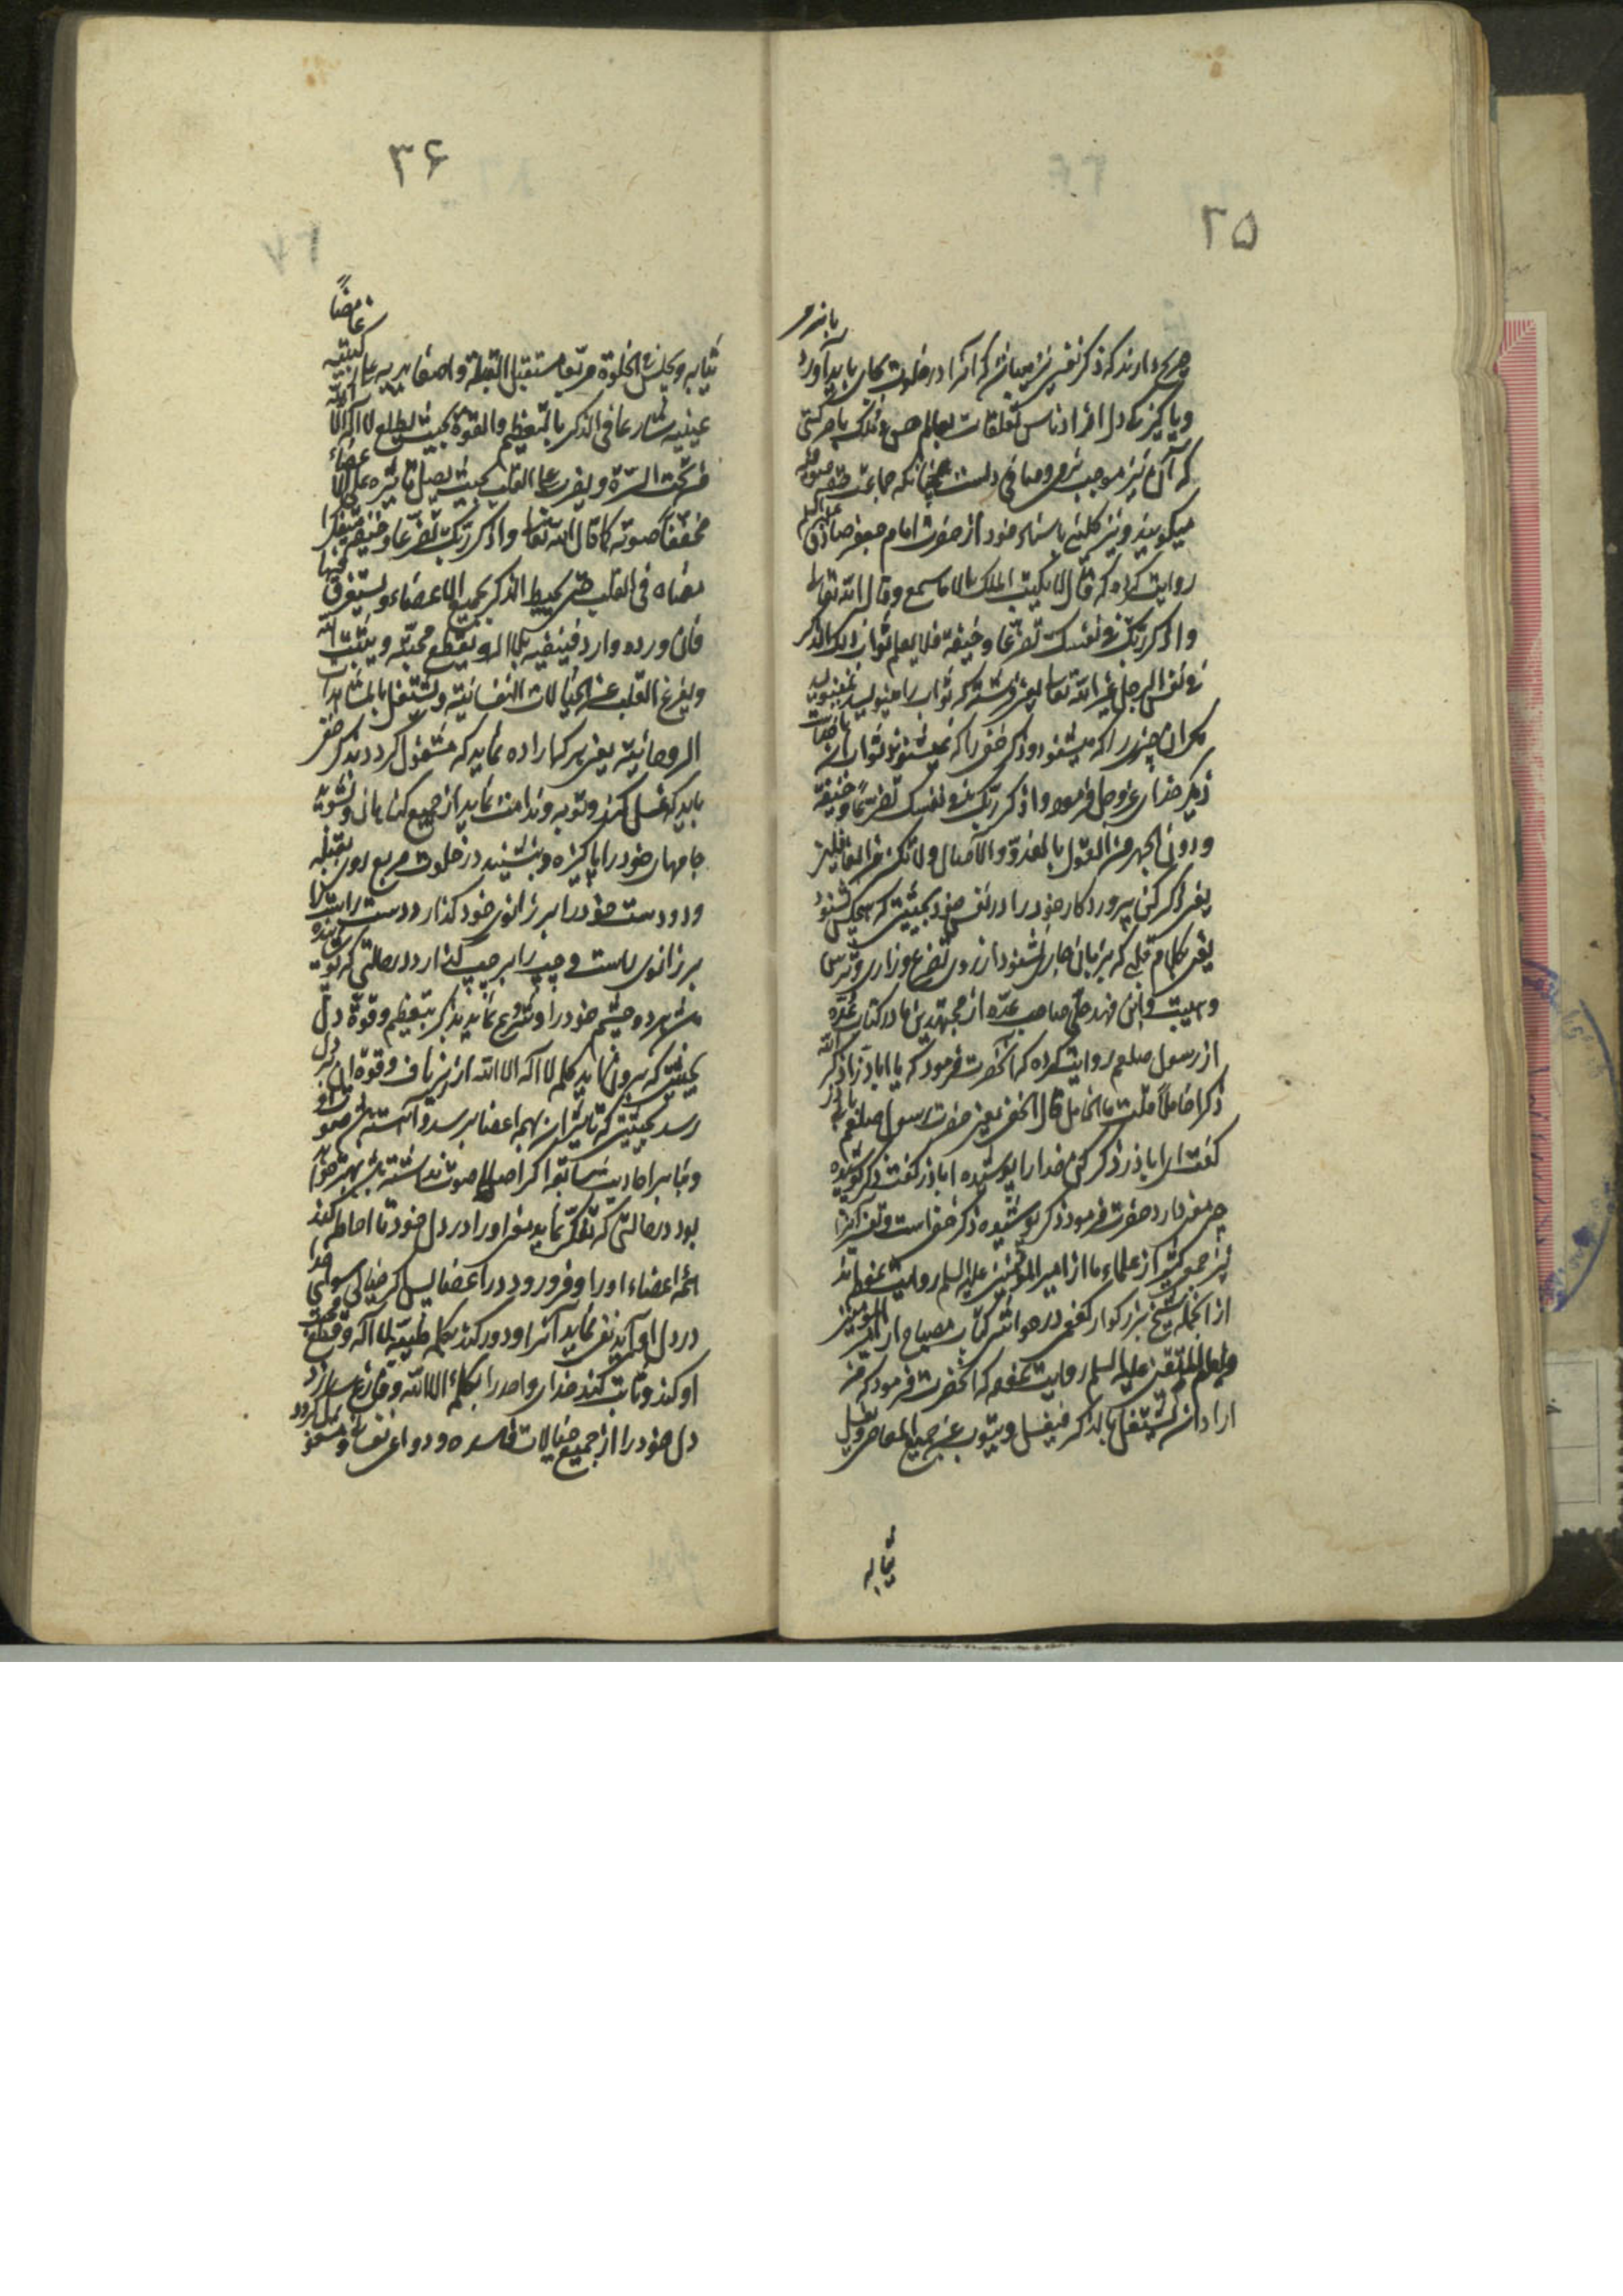 ۳۵
صریح دارند که ذکر نفسی نیز میباشد که آنرا در خلوت بجای باید آورد
و پاکیزه دل افراد ناس تعلقات بعالم حس و ملک با حرکتی
که آن نیز موجب و منافی دلست چنانکه جماعت صوفیه
میکویند و نیز کلینی باسناد خود از حضرت امام جعفر صادق علیه السلام
روایت کرده که قال لا یکتب الملک الا ما سمع وقال الله تعالی
واذکر ربک فی نفسک تضرعا وخیفة فلا یعلم ثواب ذلک الذکر
فی نفس الرجل غیر الله تعالی یعنی فرشته که ثواب را مینویسد نمینویسد
مکر آن چیزی را که میشنود و ذکر خفی را که نمیشنود ثواب
ذکر خدای عز وجل فرموده واذکر ربک فی نفسک تضرعا وخیفة
ودون الجهر من القول بالغدو والآصال ولا تکن من الغافلین
یعنی ذکر کن پروردکار خود را در نفس خود بحیثیتی که هیچکس نشنود
یعنی بکلام قلبی که بر زبان جاری نشود از روی تضرع و زاری و ترس
و هیبت و ابن فهد حلی صاحب عده از مجتهدین ما در کتاب عده
از رسول صلعم روایت کرده که آنحضرت فرمود که یا اباذر اذکر الله
ذکرا خاملا قلت ما الخامل قال الخفی یعنی حضرت رسول صلعم
کفت ای اباذر ذکر کن خدا را پوشیده اباذر کفت ذکر پوشیده
چه معنی دارد حضرت فرمود ذکر پوشیده ذکر خفی است
نیز جمعی کثیر از علماء ما از امیر المؤمنین علیه السلم روایت نموده‌اند
از آنجمله شیخ بزرکوار کفعمی در حواشی کتاب مصباح از امیر المؤمنین
وامام المتقین علیه السلم روایت نموده که آنحضرت فرمود که من
اراد ان یشتغل بالذکر فیغسل ویتوب عن جمیع المعاصی ویغسل
ثیابه
۳۶
ثیابه ویجلس فی الخلوة مربعا مستقبل القبلة واضعا یدیه علی رکبتیه غامضا
عینیه شارعا فی الذکر بالتعظیم والقوة بحیث یطلع لا اله الا الله
من تحت السرة ویضرب علی القلب بحیث یصل تاثیره علی الاعضاء
مخففا صوته کما قال الله تعالی واذکر ربک تضرعا وخیفة متفکرا
معناه فی القلب حتی یحیط الذکر بجمیع الاعضاء ویستغرق فیها
فان ورد وارد فینفیه بلا اله ویقطع محبته ویثبت الله
ویفرغ القلب عن الخیالات النفسانیة ویشتغل بالمشاهدات
الروحانیة یعنی هر که اراده نماید که مشغول کردد بذکر خفی
باید که غسل کند و توبه و ندامت نماید از جمیع کناهان و بشوید
جامهای خود را پاکیزه و بنشیند در خلوت مربع روی بقبله
و دو دست خود را بر زانوی خود کذارد دست راست را
بر زانوی راست و چپ را بر چپ کذارد در حالتی که پوشیده
باشد هر دو چشم خود را و شروع نماید بذکر بتعظیم و قوة دل
بحیثیتی که بیرون نماید کلمه لا اله الا الله از زیر ناف و قوة آن بر دل
رسد بحیثیتی که تاثیر آن بهمه اعضا برسد و آهسته باشد صوت او
و بنابر احادیث سابقه اکر اصلا صوت نداشته باشد بهتر خواهد
بود در حالتی که تفکر نماید معنی او را در دل خود تا احاطه کند
همه اعضاء او را و فرو رود در اعضا پس اکر خیالی سوای خدا
در دل او آید نفی نماید آنرا و دور کند بکلمه طیبه لا اله و قطع محبت
او کند و ثابت کند خدای واحد را بکلمه الا الله و فارغ سازد
دل خود را از جمیع خیالات فاسده و دواعی نفسانی و مشغول کردد